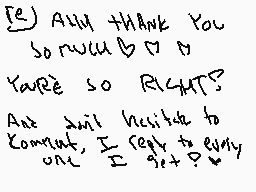 re) AHH tHANK YOU
SO MUCH ♡ ♡ ♡
YOU'RE SO RIGHT!
And don't hesitate to
Komment, I reply to every
one I get! ♥